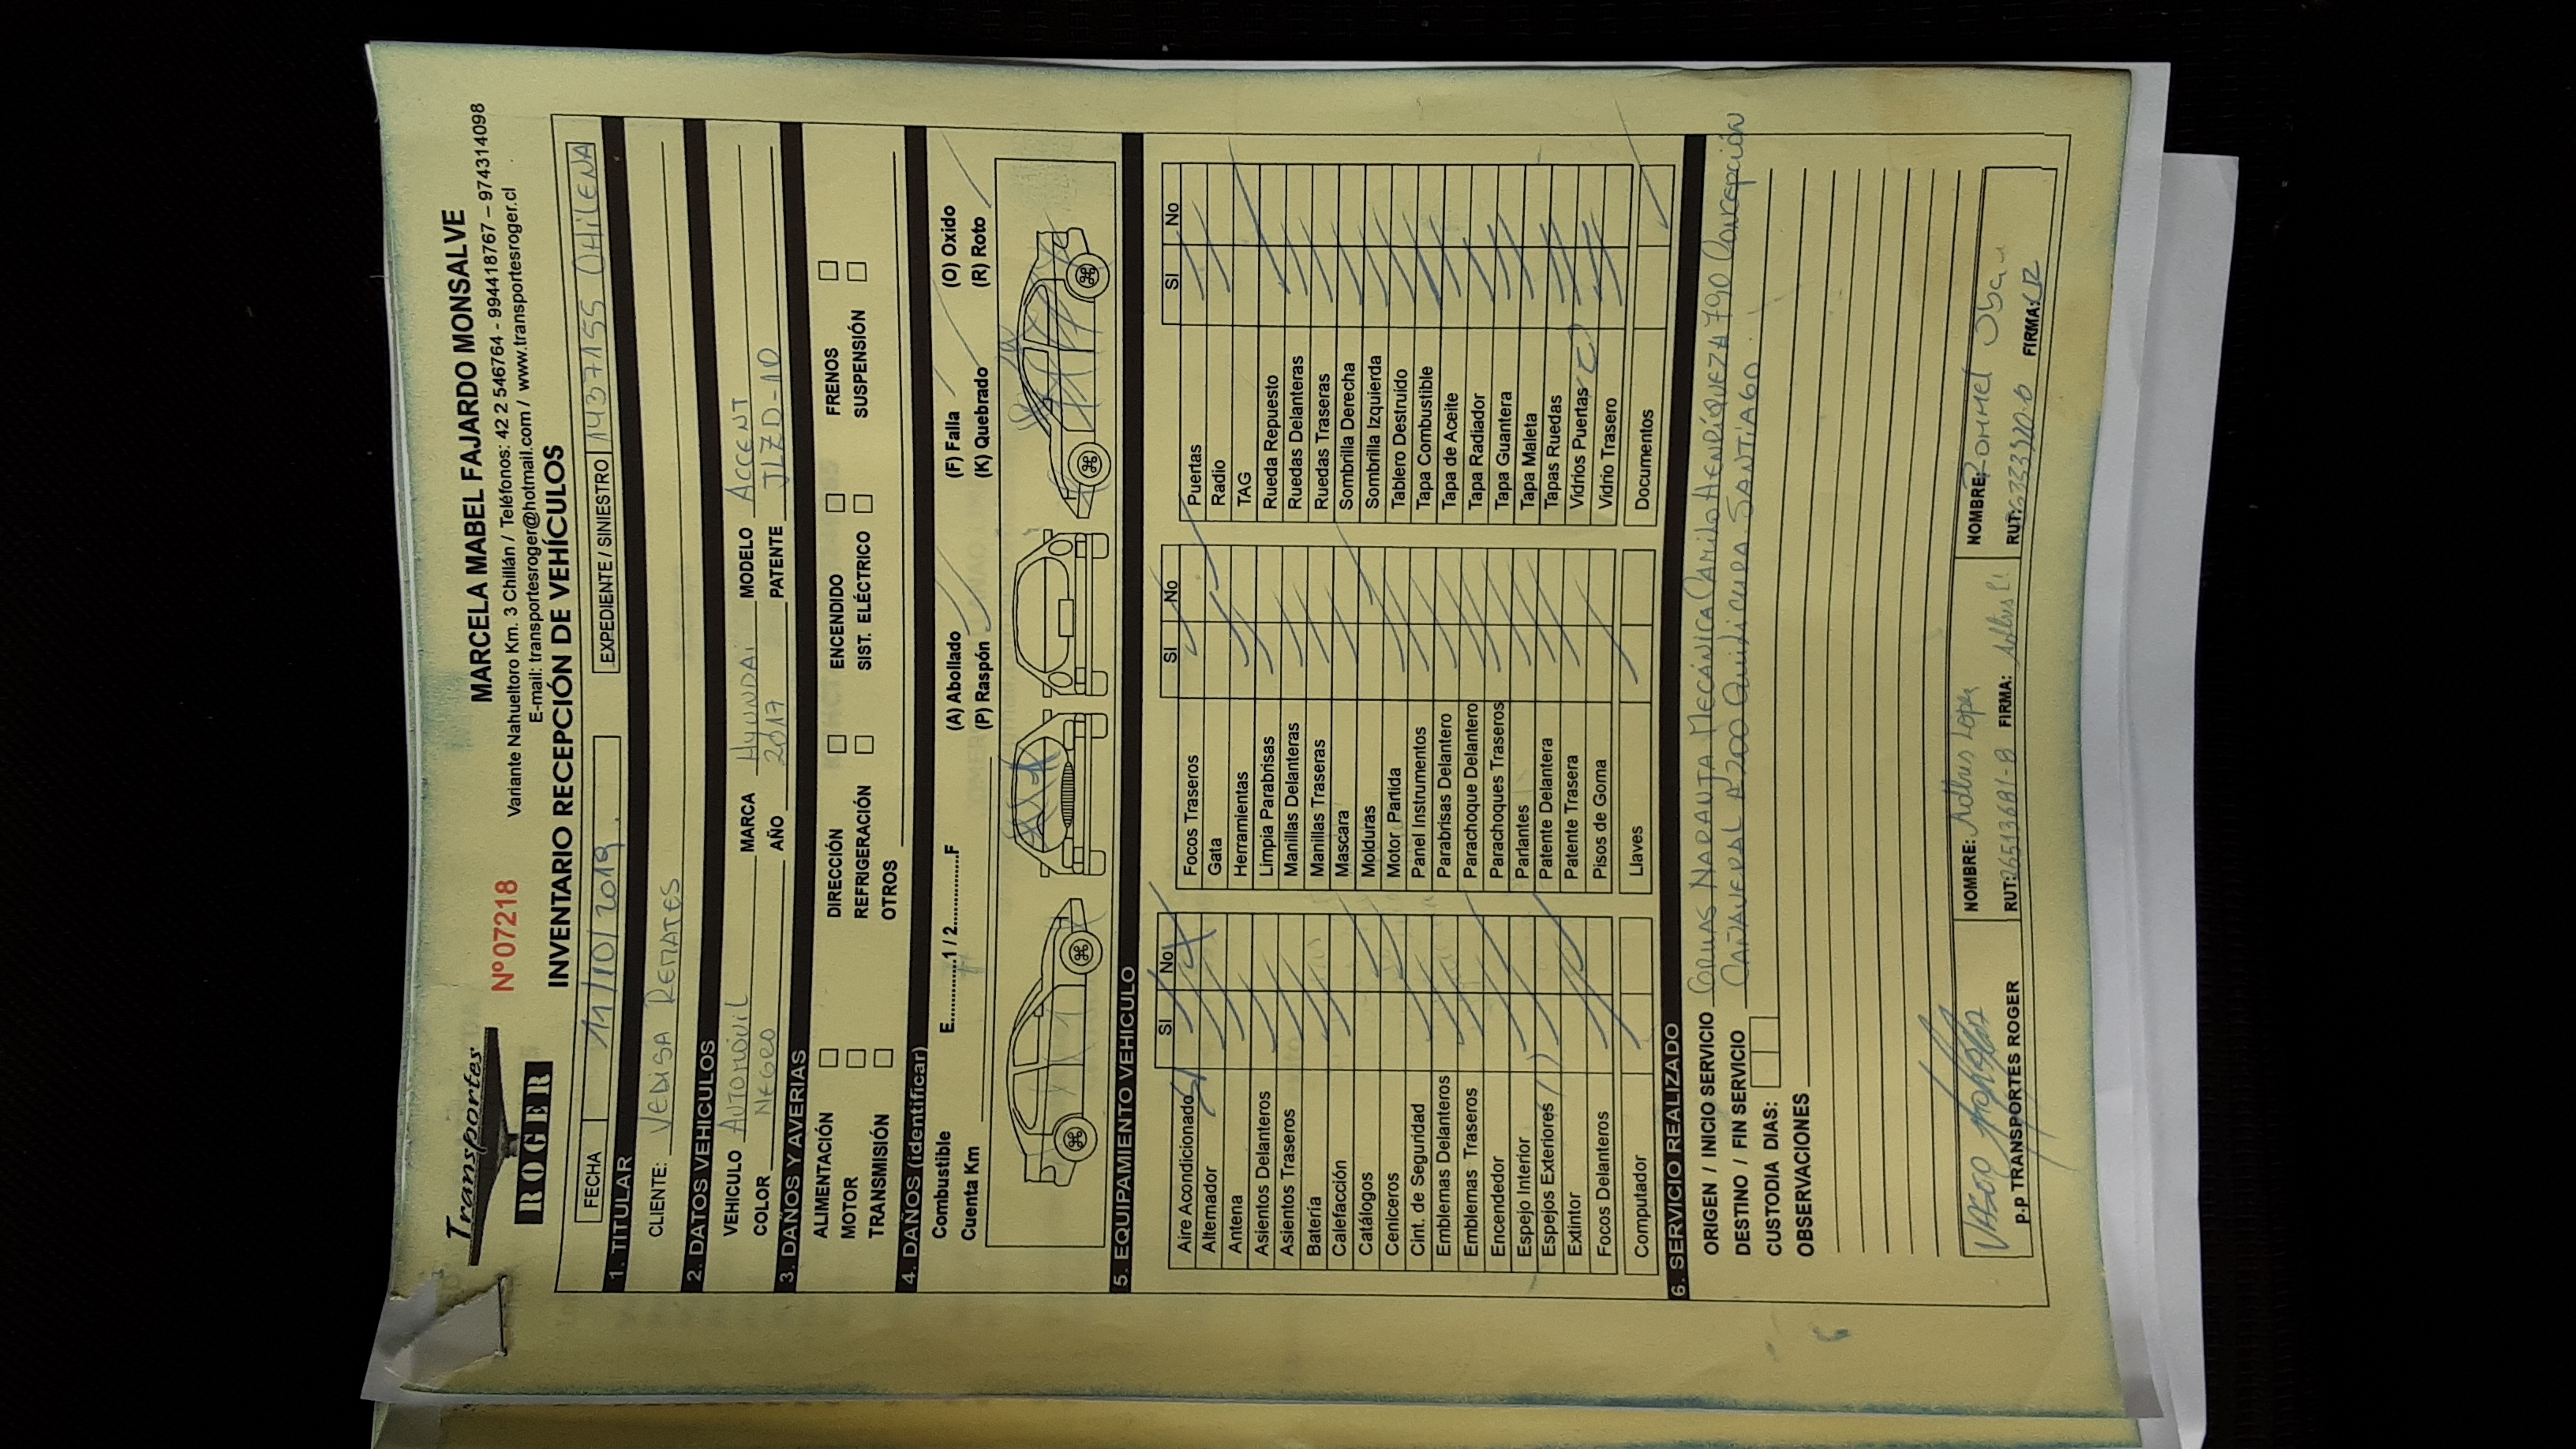 Transportes
ROGER
MARCELA MABEL FAJARDO MONSALVE
Nº 07218
Variante Nahueltoro Km. 3 Chillán / Teléfonos: 42 2 546764 - 994418767 – 974314098
E-mail: transportesroger@hotmail.com / www.transportesroger.cl
INVENTARIO RECEPCIÓN DE VEHÍCULOS
FECHA 11/10/2019. EXPEDIENTE / SINIESTRO 1437155 CHILENA
1. TITULAR
CLIENTE: VEDISA REMATES
2. DATOS VEHICULOS
VEHICULO AUTOMOVIL MARCA HYUNDAI MODELO ACCENT
COLOR NEGRO AÑO 2017 PATENTE JLZD-10
3. DAÑOS Y AVERIAS
ALIMENTACIÓN DIRECCIÓN ENCENDIDO FRENOS
MOTOR REFRIGERACIÓN SIST. ELÉCTRICO SUSPENSIÓN
TRANSMISIÓN OTROS
4. DAÑOS (identificar)
Combustible E.............1 / 2.............F (A) Abollado (F) Falla (O) Oxido
Cuenta Km (P) Raspón (K) Quebrado (R) Roto
5. EQUIPAMIENTO VEHICULO
SI No SI No SI No
Aire Acondicionado Focos Traseros Puertas
Alternador Gata Radio
Antena Herramientas TAG
Asientos Delanteros Limpia Parabrisas Rueda Repuesto
Asientos Traseros Manillas Delanteras Ruedas Delanteras
Batería Manillas Traseras Ruedas Traseras
Calefacción Mascara Sombrilla Derecha
Catálogos Molduras Sombrilla Izquierda
Ceniceros Motor Partida Tablero Destruido
Cint. de Seguridad Panel Instrumentos Tapa Combustible
Emblemas Delanteros Parabrisas Delantero Tapa de Aceite
Emblemas Traseros Parachoque Delantero Tapa Radiador
Encendedor Parachoques Traseros Tapa Guantera
Espejo Interior Parlantes Tapa Maleta
Espejos Exteriores Patente Delantera Tapas Ruedas
Extintor Patente Trasera Vidrios Puertas
Focos Delanteros Pisos de Goma Vidrio Trasero
Computador Llaves Documentos
6. SERVICIO REALIZADO
ORIGEN / INICIO SERVICIO GRUAS NARANJA MECÁNICA CAMILO HENRÍQUEZ A 790 Concepción
DESTINO / FIN SERVICIO CAÑAVERAL A200 Quilicura SANTIAGO.
CUSTODIA DIAS:
OBSERVACIONES
NOMBRE: Lopez NOMBRE: Rommel
P.P TRANSPORTES ROGER RUT: FIRMA: RUT: FIRMA: